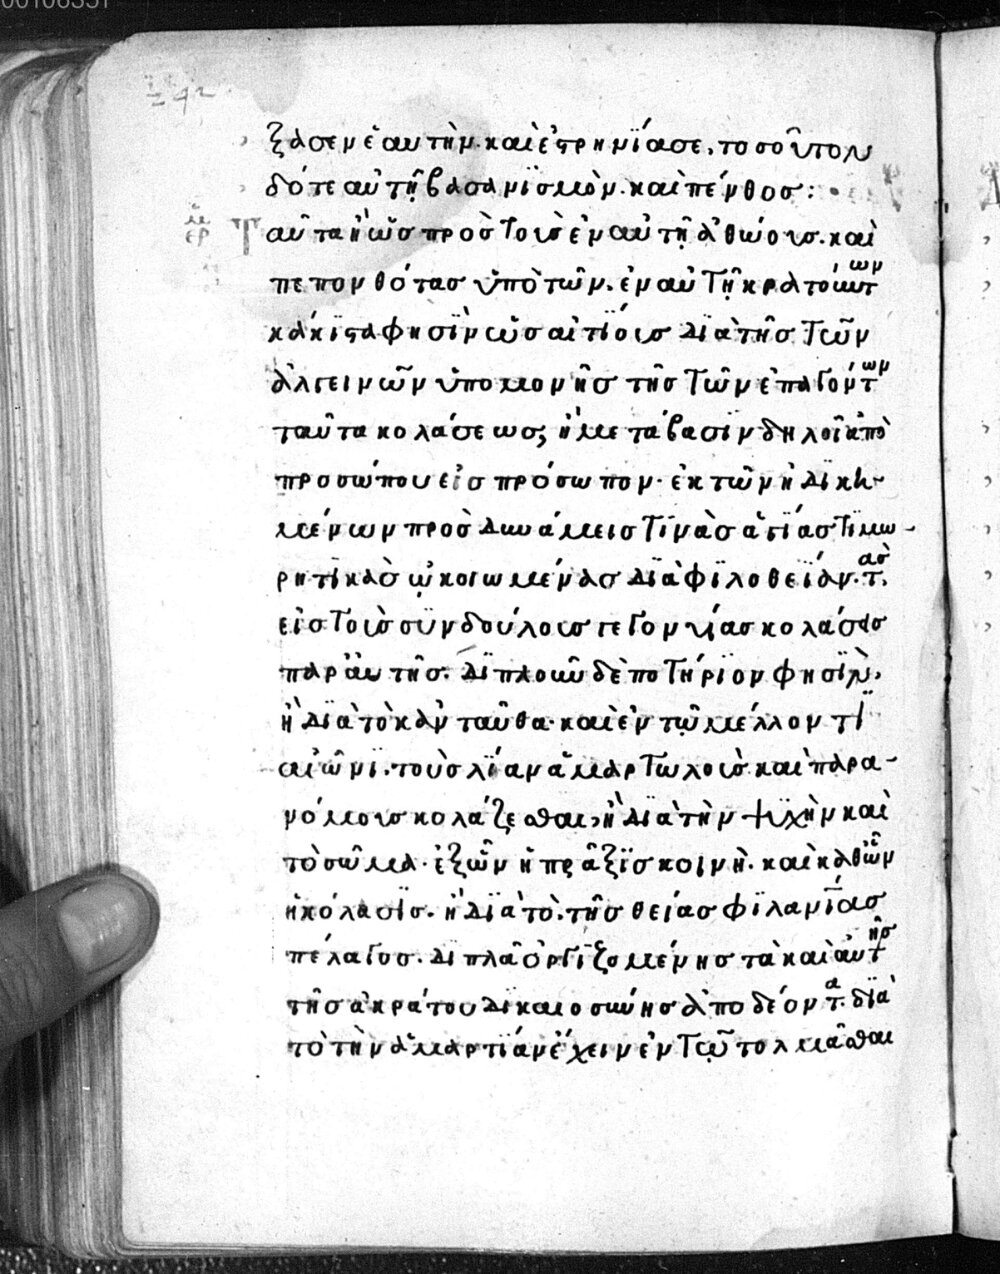 ξασεν ἑαυτὴν· καὶ ἐστρηνίασε, τοσοῦτον
δότε αὐτῇ βασανϊσμὸν· καὶ πένθος:
Ταῦτα ἢ ὡς πρὸς τοὺς ἐν αὐτῇ ἀθώους· καὶ
πεπονθότας ὑπὸ τῶν· ἐν αὐτῇ κρατούντων
κάκιστα φησὶν ὡς αἰτίους διὰ τῆς τῶν
ἀλγεινῶν ὑπομονῆς τῆς τῶν ἐπαγόντων
ταῦτα κολάσεως; ἢ μετάβασιν δηλοῖ ἀπὸ
προσώπου εἰς πρόσωπον· ἐκ τῶν ἠδικη-
μένων πρὸς δυνάμεις τινὰς ἁγίας τιμω-
ρητικὰς ᾠκοιωμένας διὰ φιλοθεΐαν· τὰς
εἰς τοὺς συνδούλους γεγονυίας κολάσεις
παρ' αὐτῆς. διπλοῦν δὲ ποτήριον φησὶν,
ἢ διὰ τὸ κἀνταῦθα· καὶ ἐν τῷ μέλλοντι
αἰῶνι· τοὺς λίαν ἁμαρτωλοὺς καὶ παρα-
νόμους κολάζεσθαι, ἢ διὰ τὴν ψυχὴν καὶ
τὸ σῶμα· ἐξ ὧν ἡ πρᾶξις κοινὴ· καὶ καθ' ὧν
ἡ κόλασις. ἢ διὰ τὸ· τῆς θείας φιλανίας
πέλαγος. διπλᾶ ὀργιζομένης τὰ καὶ αὐτῆς
τῆς ἀκράτου δικαιοσύνης ἀποδέοντα· διὰ
τὸ τὴν ἁμαρτίαν ἔχειν ἐν τῷ τολμᾶσθαι